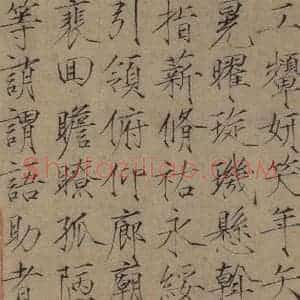 工顰妍笑年矢
晃曜璇璣懸斡
指薪脩祐永綏
引領俯仰廊廟
裵回瞻眺孤陋
等誚謂語助者